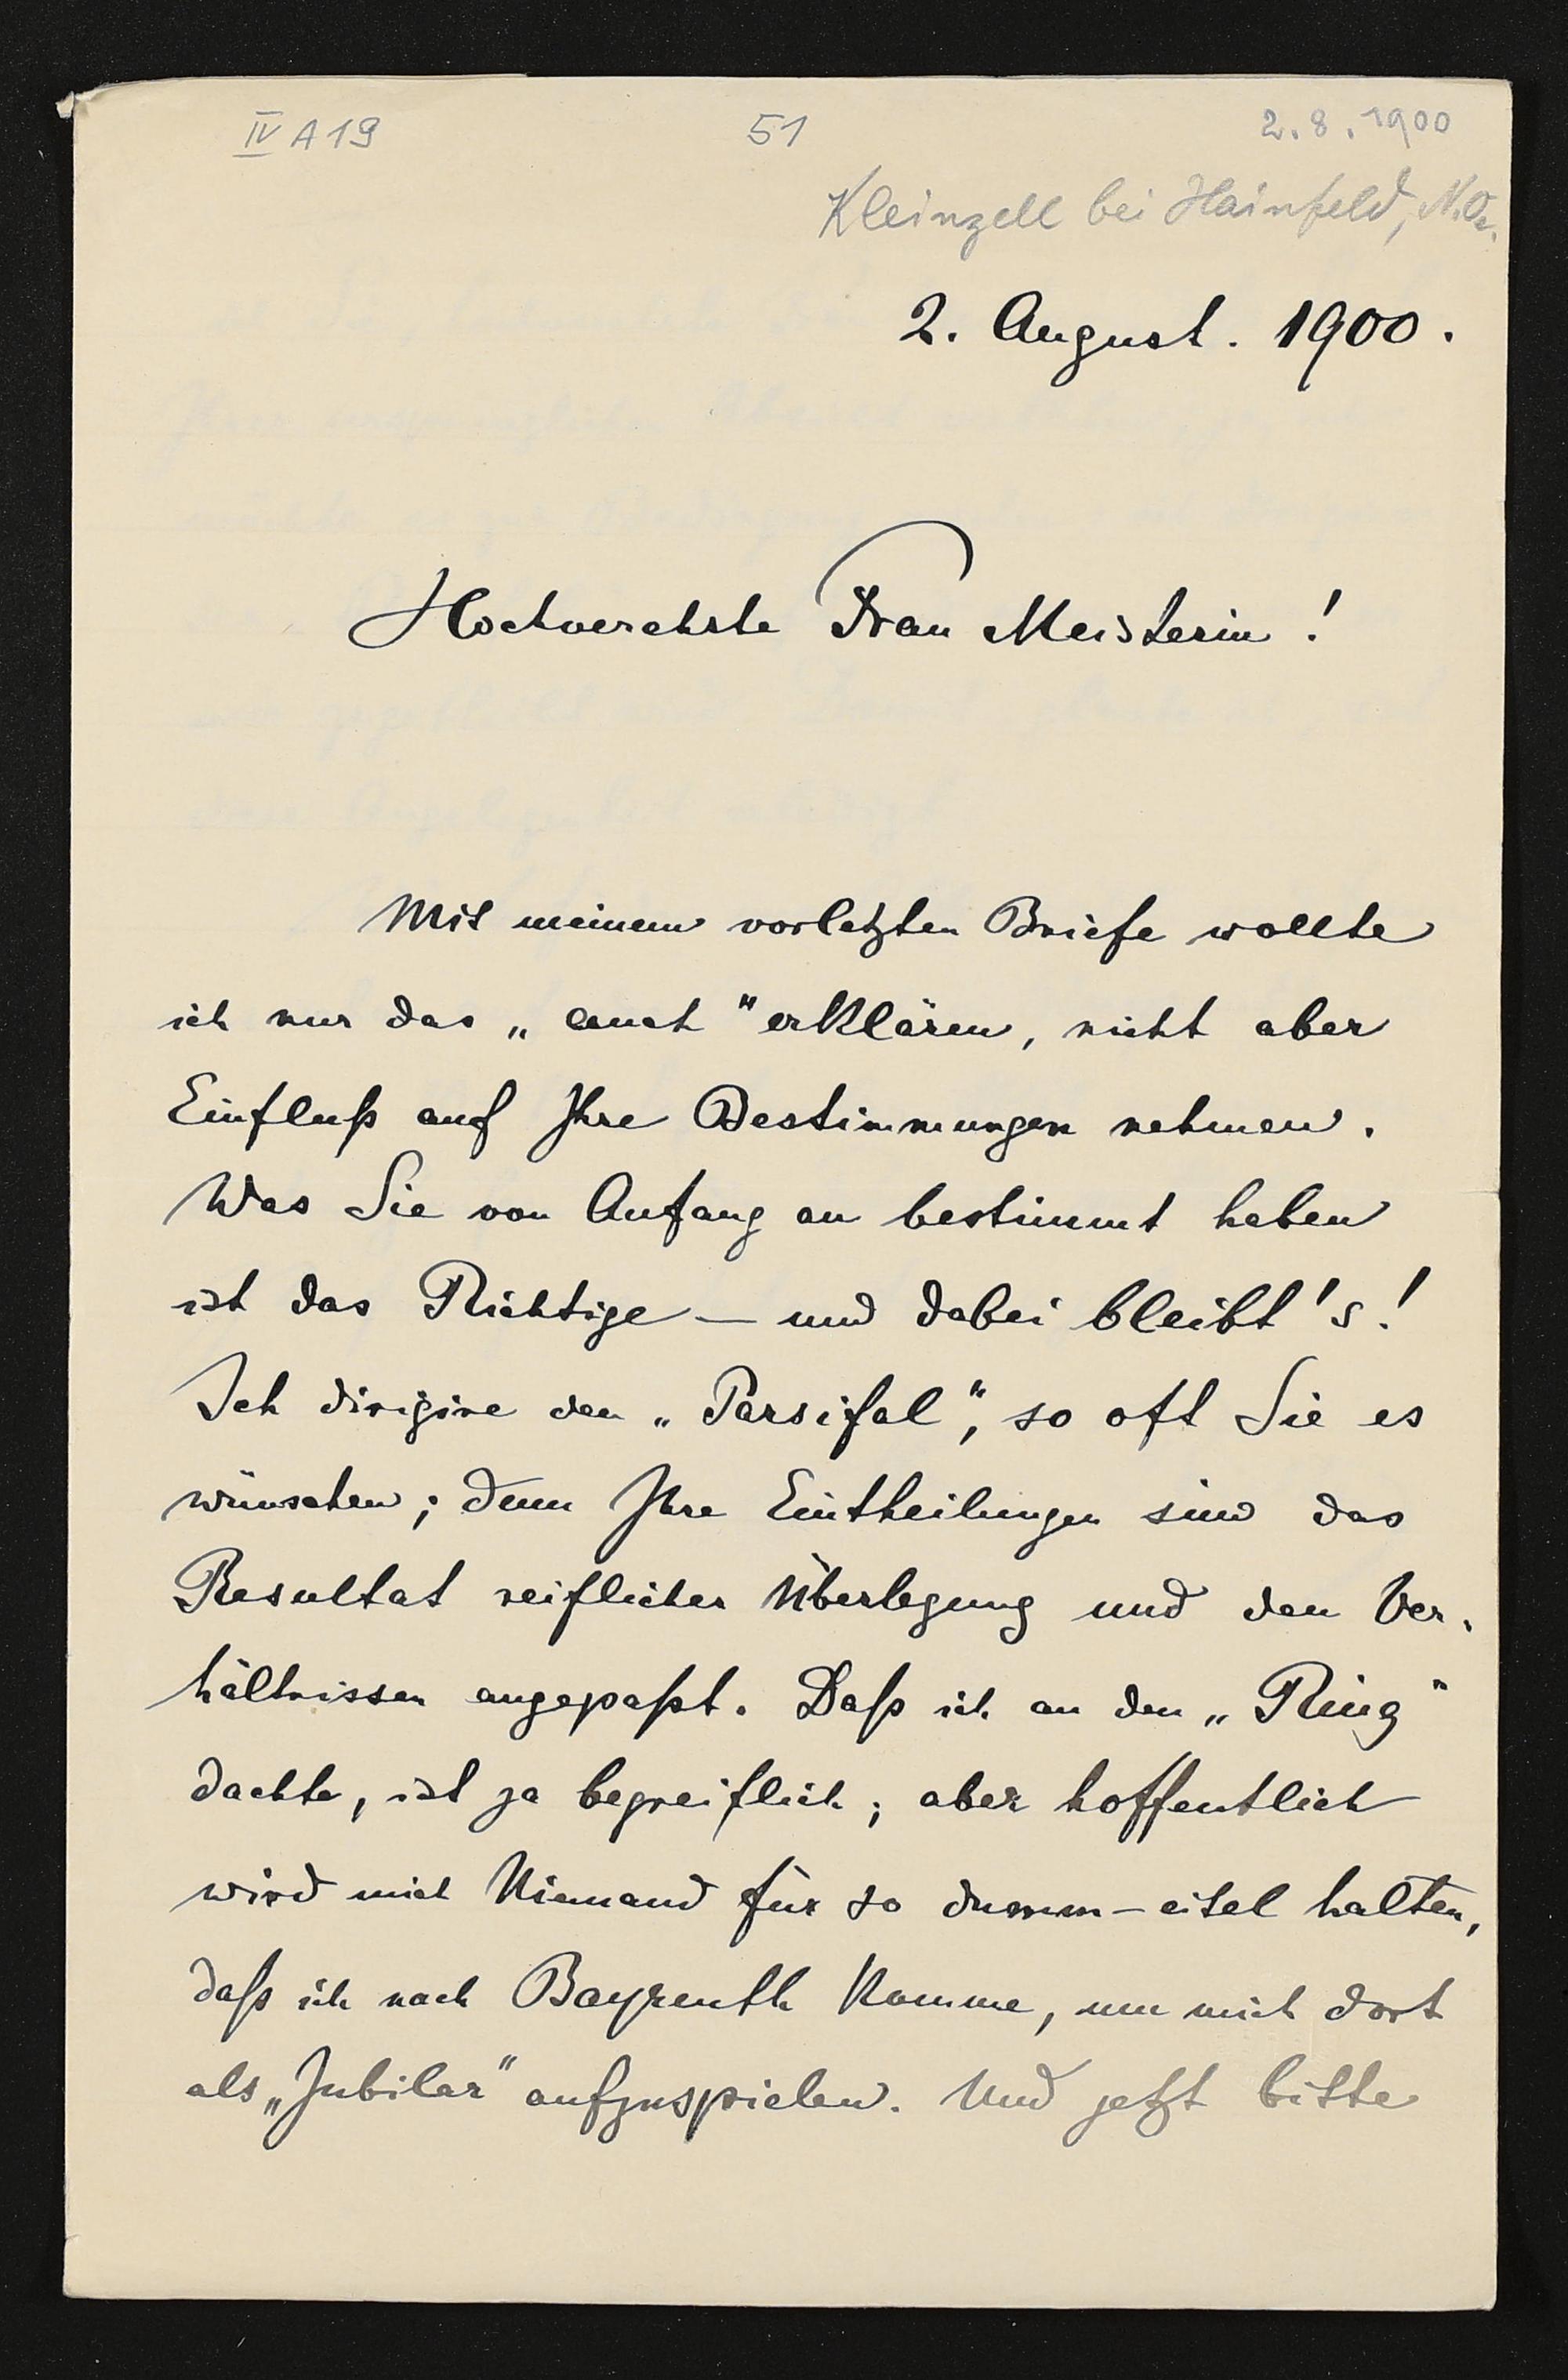 IV A 19 51 2.8.1900
Kleinzell bei Hainfeld, N.Oe.
2. August. 1900.
Hochverehrte Frau Meisterin!
Mit meinem vorletzten Briefe wollte
ich nur das „auch" erklären, nicht aber
Einfluß auf Ihre Bestimmungen nehmen.
Was Sie von Anfang an bestimmt haben
ist das Richtige — und dabei bleibt's!
Ich dirigire den „Parsifal", so oft Sie es
wünschen; denn Ihre Eintheilungen sind das
Resultat reiflicher Überlegung und den Ver-
hältnissen angepaßt. Daß ich an den „Ring"
dachte, ist ja begreiflich; aber hoffentlich
wird mich Niemand für so dumm-eitel halten,
daß ich nach Bayreuth komme, um mich dort
als „Jubilar" aufzuspielen. Und jetzt bitte